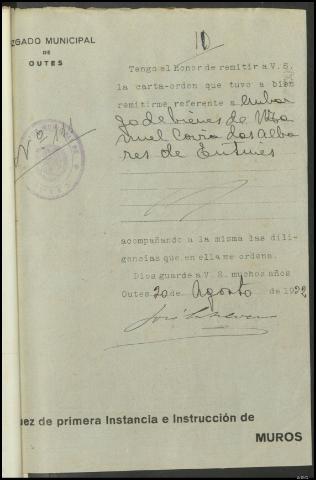 10
ZGADO MUNICIPAL
DE
OUTES
Tengo el Honor de remitir a V. S.
la carta-orden que tuvo a bien
remitirme referente a Embar
go de bienes de Ma
nuel
res de
acompañando a la misma las dili-
gencias que en ella me ordena.
Dios guarde a V. S. muchos años
Outes 20 de Agosto de 1922
José
uez de primera Instancia e Instrucción de
MUROS